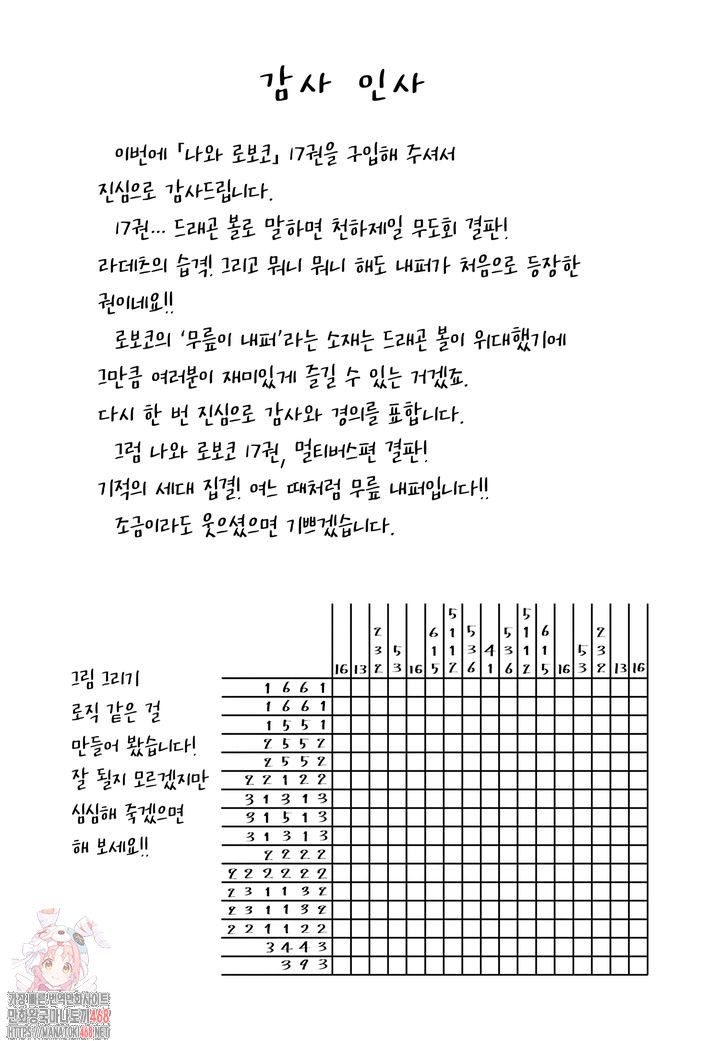 감사 인사
이번에 「나와 로보코」 17권을 구입해 주셔서
진심으로 감사드립니다.
17권... 드래곤 볼로 말하면 천하제일 무도회 결판!
라데츠의 습격! 그리고 뭐니 뭐니 해도 내퍼가 처음으로 등장한
권이네요!!
로보코의 '무릎이 내퍼'라는 소재는 드래곤 볼이 위대했기에
그만큼 여러분이 재미있게 즐길 수 있는 거겠죠.
다시 한 번 진심으로 감사와 경의를 표합니다.
그럼 나와 로보코 17권, 멀티버스편 결판!
기적의 세대 집결! 여느 때처럼 무릎 내퍼입니다!!
조금이라도 웃으셨으면 기쁘겠습니다.
그림 그리기
로직 같은 걸
만들어 봤습니다!
잘 될지 모르겠지만
심심해 죽겠으면
해 보세요!!
5 5
2 6 1 5 5 1 6 2
3 5 1 1 3 4 3 1 1 5 3
16 13 2 3 16 5 2 6 1 6 2 5 16 3 2 13 16
1 6 6 1
1 6 6 1
1 5 5 1
2 5 5 2
2 5 5 2
2 2 1 2 2
3 1 3 1 3
3 1 5 1 3
3 1 3 1 3
2 2 2 2
2 2 2 2 2 2
2 3 1 1 3 2
2 3 1 1 3 2
2 2 1 1 2 2
3 4 4 3
3 9 3
가장빠른번역만화사이트
만화왕국마나토끼468
HTTPS://MANATOKI468.NET